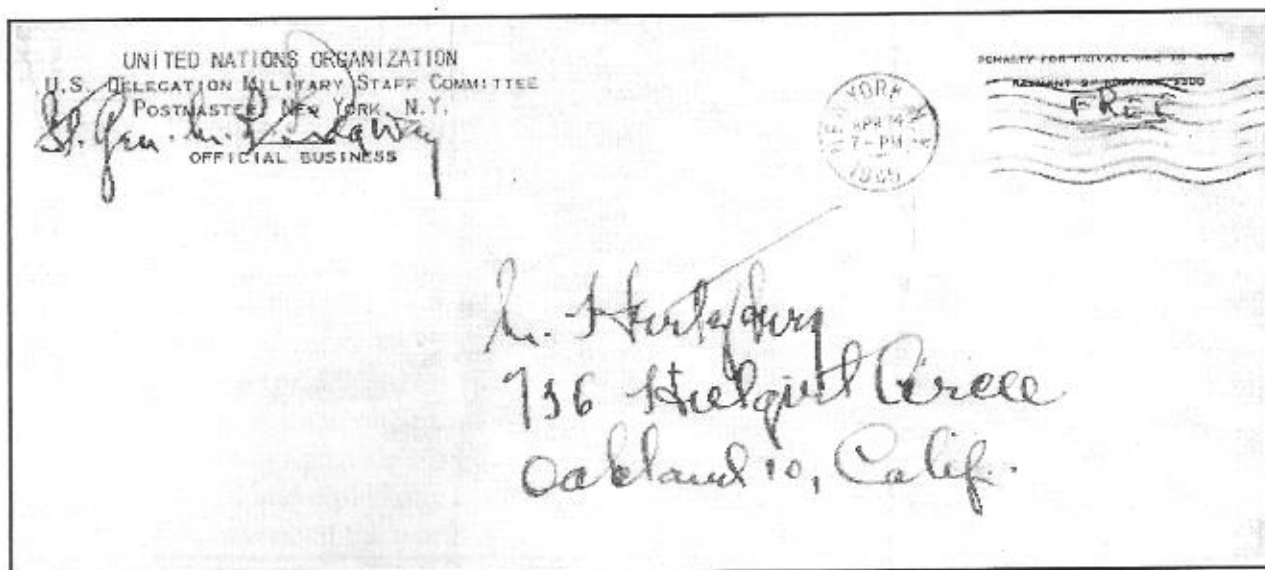 UNITED NATIONS ORGANIZATION
U.S. DELEGATION MILITARY STAFF COMMITTEE
POSTMASTER, NEW YORK, N.Y.
Lt. Gen. M. B. Ridgway
OFFICIAL BUSINESS
NEW YORK, N.Y.
APR 24
7 - PM
PENALTY FOR PRIVATE USE TO AVOID
PAYMENT OF POSTAGE, $300
FREE
736
Circle
Oakland 10, Calif.